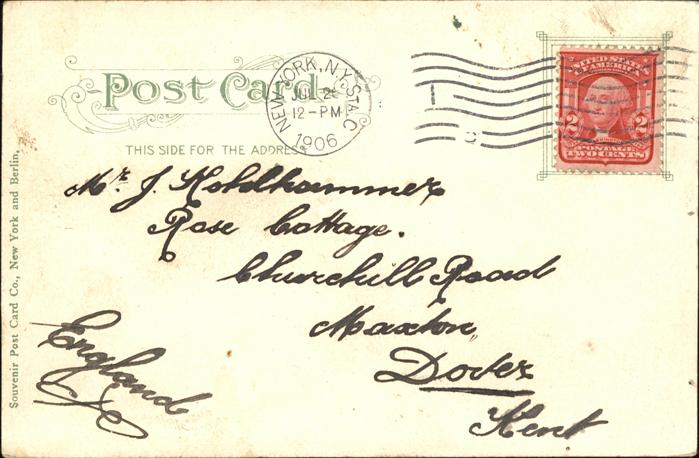 Post Card.
NEW YORK, N.Y. STA. C
12-PM
1906
THIS SIDE FOR THE ADDRESS
UNITED STATES
OF AMERICA
2 2
POSTAGE
TWO CENTS
Mr. J. Kohlhammer
Rose Cottage.
Churchill Road
Maxton
Dover
Kent
England
Souvenir Post Card Co., New York and Berlin.